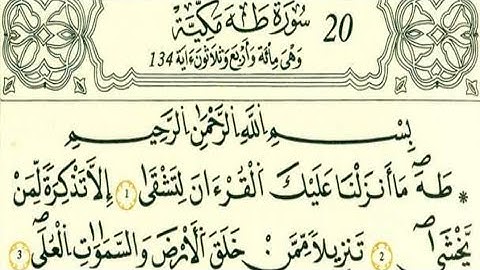 سُورَةُ طَهَ مَكِّيَّةٌ 20
وَهْيَ مِائَةٌ وَأَرْبَعٌ وَثَلَاثُونَ ءَايَةً 134
بِسْمِ اِللَّهِ اِلرَّحْمَٰنِ اِلرَّحِيمِ
* طَهَ مَا أَنزَلْنَا عَلَيْكَ اَلْقُرْءَانَ لِتَشْقَىٰ 1 إِلَّا تَذْكِرَةً لِّمَنْ
يَّخْشَىٰ 2 تَنزِيلاً مِّمَّنْ خَلَقَ اَلْأَرْضَ وَالسَّمَٰوَٰتِ اِلْعُلَى 3